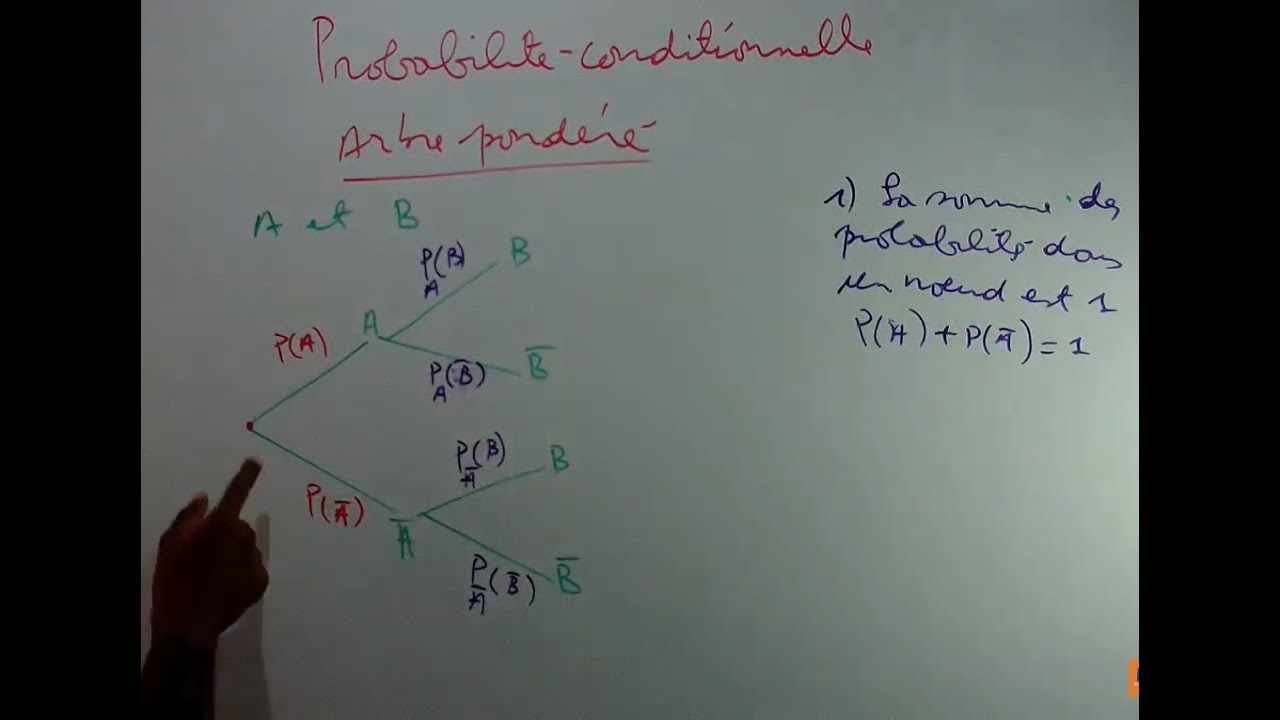 Probabilité-conditionnelle
Arbre pondéré
A et B
P_A(B)
B
P(A)
A
P_A(B̅)
B̅
P(A̅)
A̅
P_A̅(B)
B
P_A̅(B̅)
B̅
1) La somme des
probabilités dans
un noeud est 1
P(A) + P(A̅) = 1